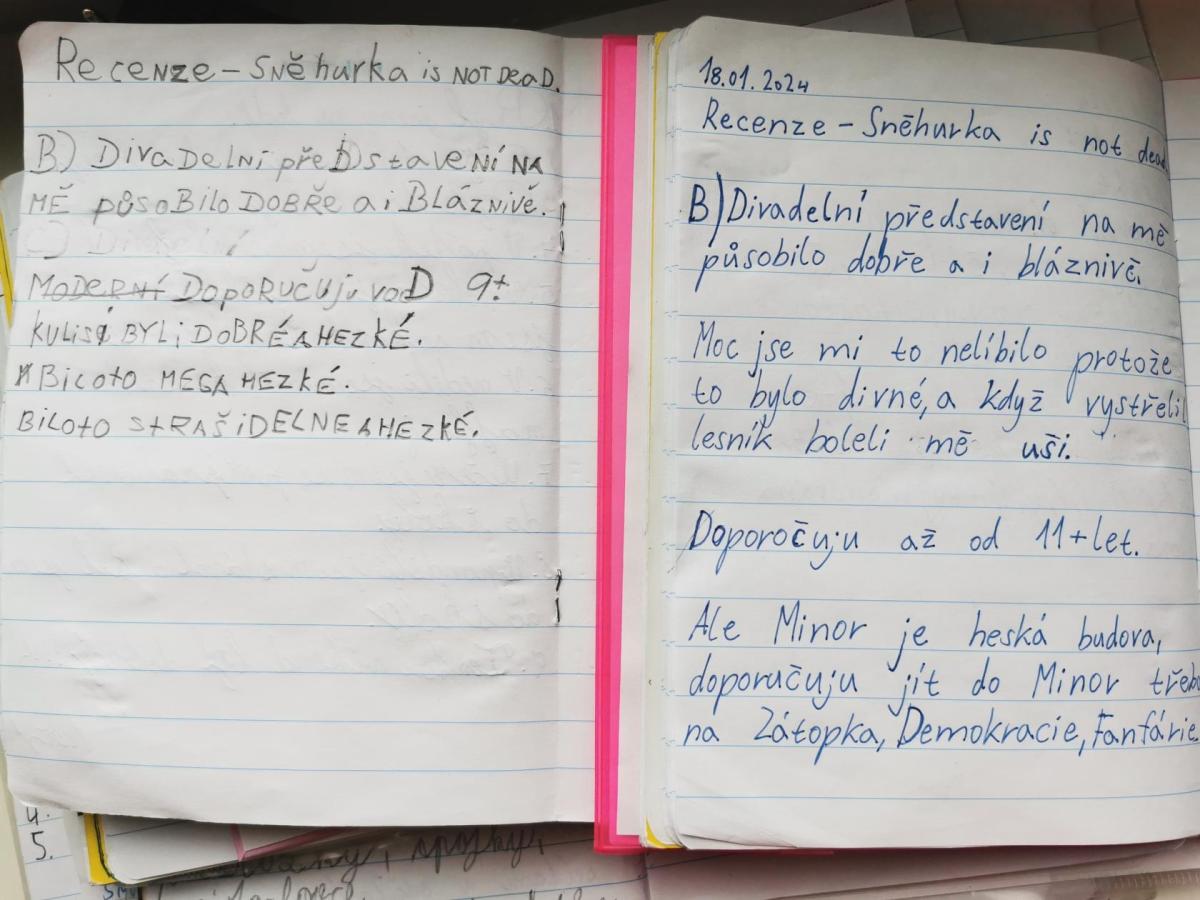 Recenze – Sněhurka is NOT DeaD.
B) Divadelní představení NA
MĚ působilo DOBŘE a i Bláznivě.
MODERNÍ DOPORUČuju voD 9+
KULISi BYLi DOBRÉ A HEZKÉ.
Biloto MEGA HEZKÉ.
BiLOTO STRAŠiDELNE A HEZKÉ.
18.01.2024
Recenze – Sněhurka is not dead.
B) Divadelní představení na mě
působilo dobře a i bláznivě.
Moc jse mi to nelíbilo protože
to bylo divné, a když vystřelil
lesník boleli mě uši.
Doporočuju až od 11+let.
Ale Minor je heská budova,
doporučuju jít do Minor třeba
na Zátopka, Demokracie, Fanfárie
4.
5.
spojky,